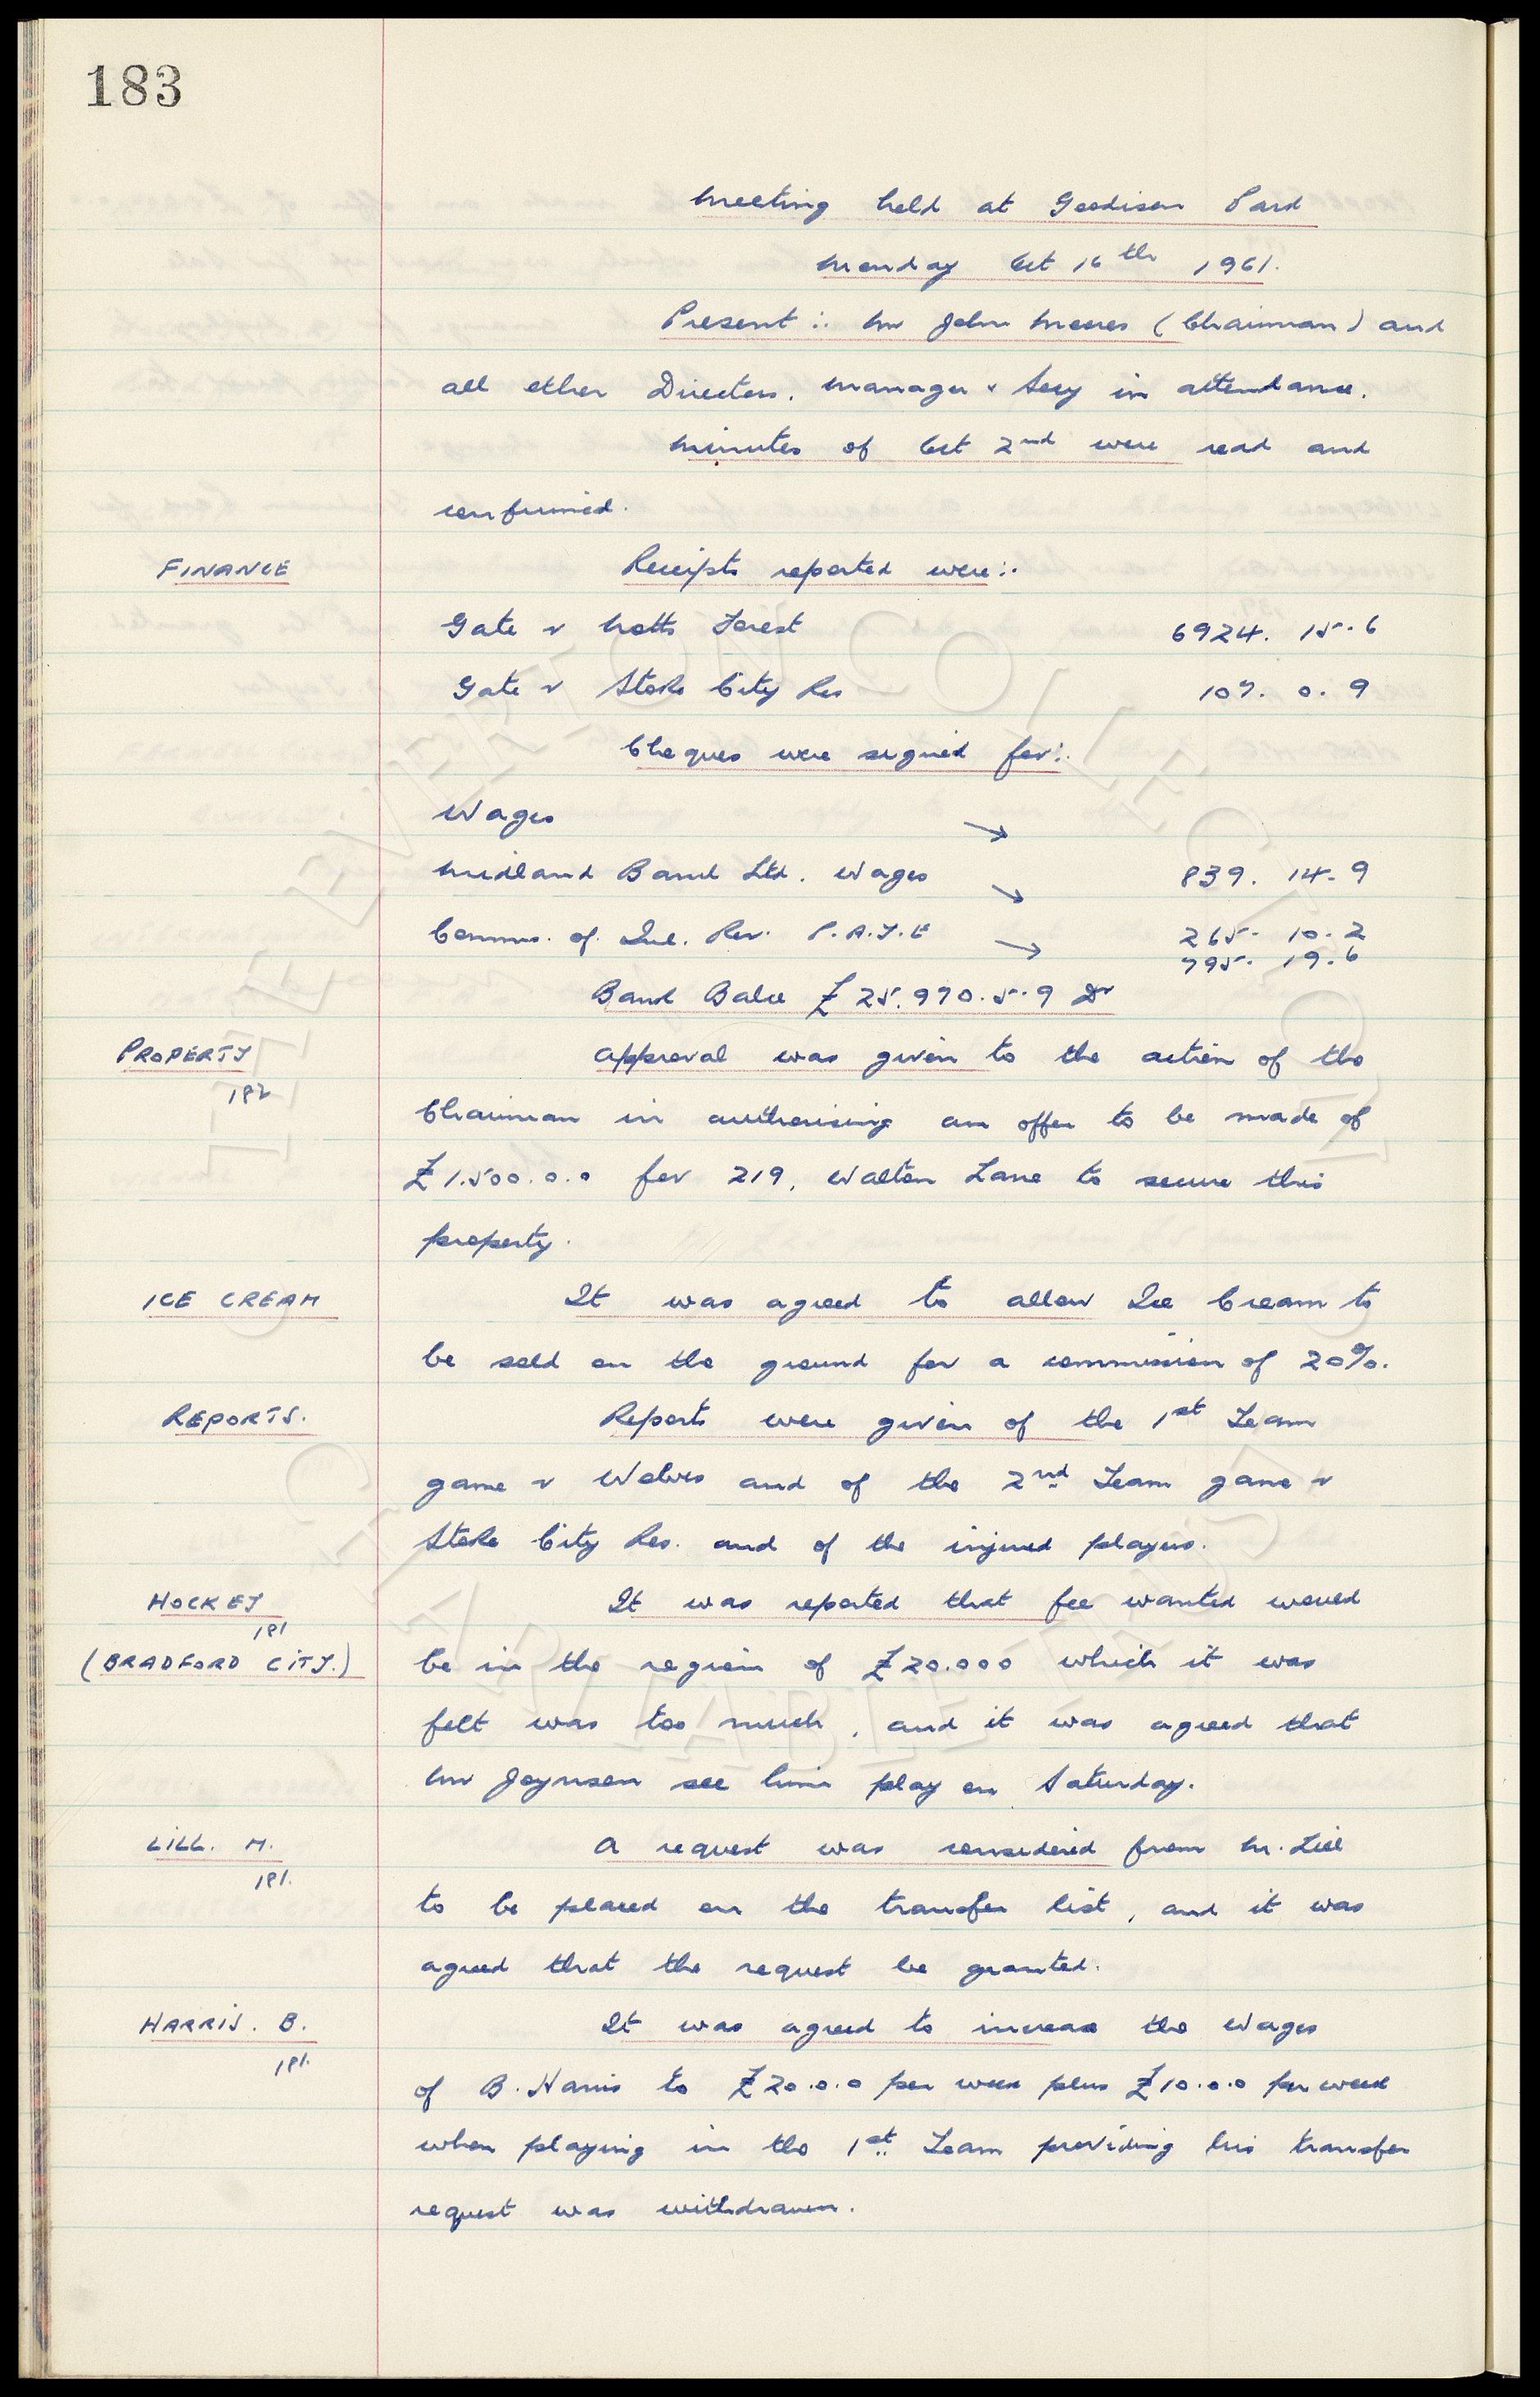 183
Meeting held at Goodison Park
Monday Oct 16th 1961.
Present :. Mr John Moores (Chairman) and
all other Directors. Manager & Secy in attendance.
Minutes of Oct 2nd were read and
confirmed.
FINANCE Receipts reported were:.
Gate v Notts Forest 6924. 15. 6
Gate v Stoke City Res 107. 0. 9
Cheques were signed for:.
Wages → 839. 14. 9
Midland Bank Ltd. Wages → 265. 10. 2
Comms. of Inl. Rev. P.A.Y.E → 795. 19. 6
Bank Balce £25.970.5.9 Dr
PROPERTY Approval was given to the action of the
182
Chairman in authorising an offer to be made of
£1.500.0.0 for 219, Walton Lane to secure this
property.
ICE CREAM It was agreed to allow Ice Cream to
be sold on the ground for a commission of 20%.
REPORTS. Reports were given of the 1st Team
game v Wolves and of the 2nd Team game v
Stoke City Res. and of the injured players.
HOCKEY It was reported that fee wanted would
181
(BRADFORD CITY.) be in the region of £20.000 which it was
felt was too much, and it was agreed that
Mr Joynson see him play on Saturday.
LILL. M. A request was considered from M. Lill
181.
to be placed on the transfer list, and it was
agreed that the request be granted.
HARRIS. B. It was agreed to increase the Wages
181.
of B. Harris to £20.0.0 per week plus £10.0.0 per week
when playing in the 1st Team providing his transfer
request was withdrawn.